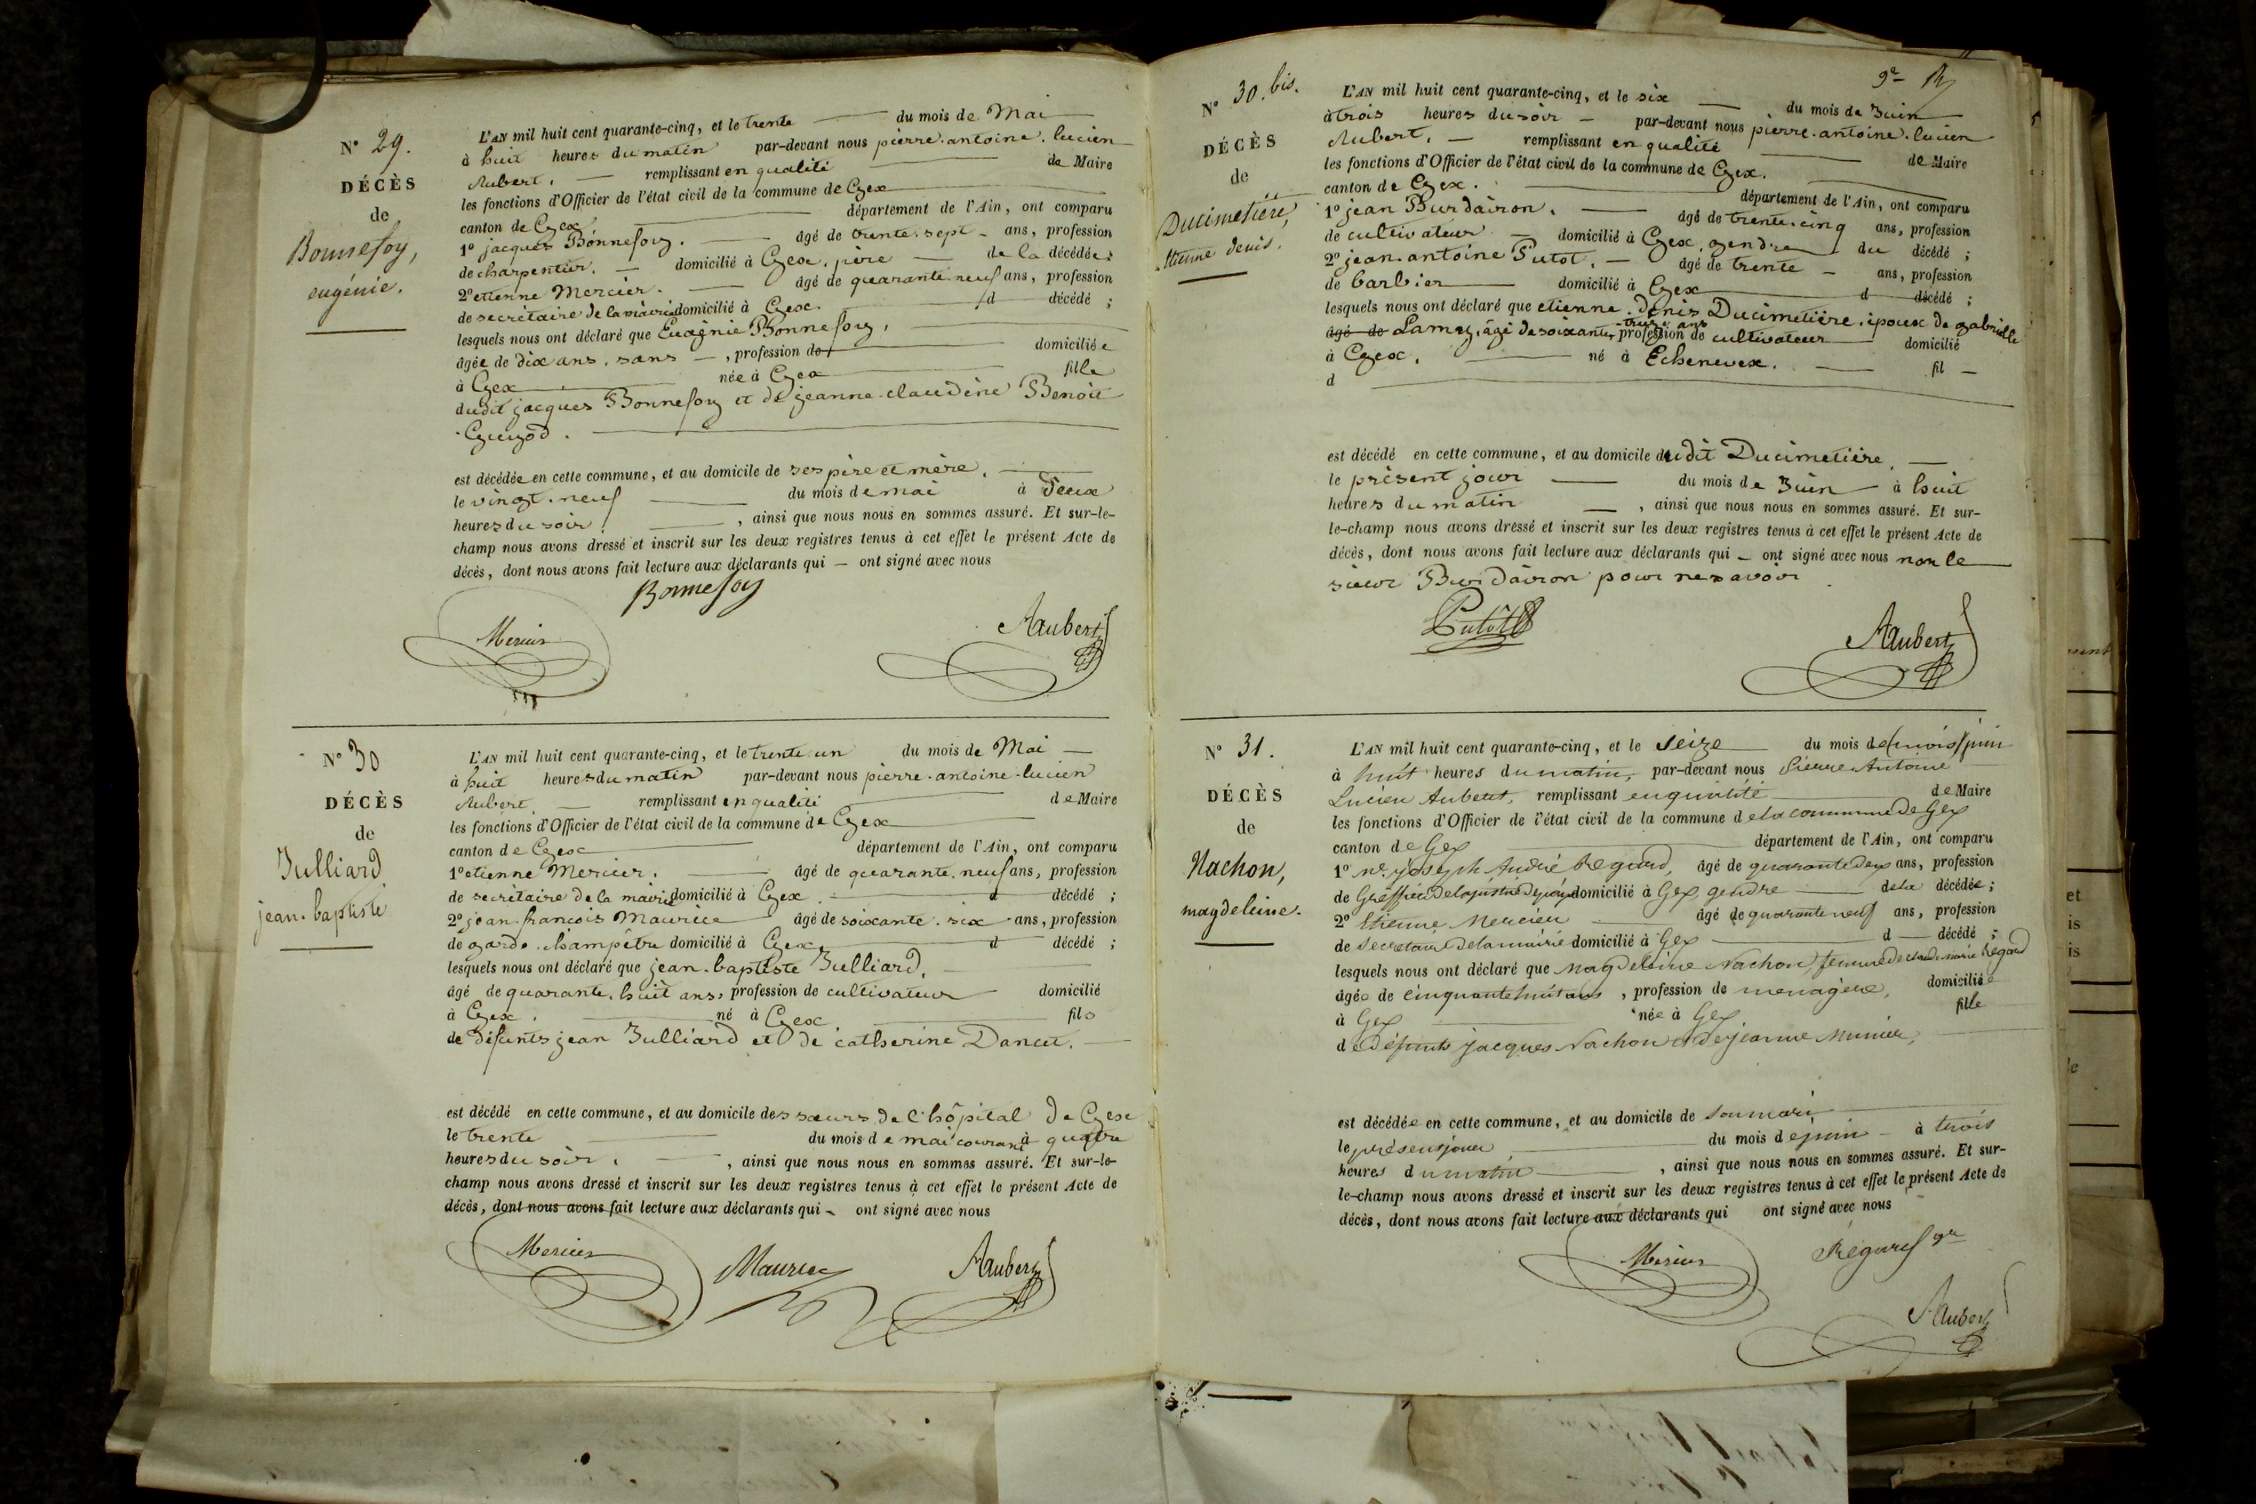 N° 29.
DÉCÈS
de
Bonnefoy,
eugénie.
L'AN mil huit cent quarante-cinq, et le trente du mois de Mai
à huit heures du matin par-devant nous pierre-antoine-lucien
Aubert, remplissant en qualité de Maire
les fonctions d'Officier de l'état civil de la commune de Gex
canton de Gex département de l'Ain, ont comparu
1° jacques Bonnefoy. âgé de trente-sept ans, profession
de charpentier. domicilié à Gex, père de la décédée;
2° etienne Mercier. âgé de quarante neuf ans, profession
de secrétaire de la mairie domicilié à Gex. d décédé ;
lesquels nous ont déclaré que Eugénie Bonnefoy,
âgée de dix ans, sans , profession de domiciliée
à Gex née à Gex fille
dudit jacques Bonnefoy et de jeanne-claudine Benoit
Guyod.
est décédée en cette commune, et au domicile de ses père et mère.
le vingt-neuf du mois de mai à deux
heures du soir , ainsi que nous nous en sommes assuré. Et sur-le-
champ nous avons dressé et inscrit sur les deux registres tenus à cet effet le présent Acte de
décès, dont nous avons fait lecture aux déclarants qui — ont signé avec nous
Bonnefoy
Mercier Aubert
N° 30
DÉCÈS
de
Julliard
jean-baptiste
L'AN mil huit cent quarante-cinq, et le trente un du mois de Mai
à huit heures du matin par-devant nous pierre-antoine-lucien
Aubert remplissant en qualité de Maire
les fonctions d'Officier de l'état civil de la commune de Gex
canton de Gex département de l'Ain, ont comparu
1° etienne Mercier. âgé de quarante-neuf ans, profession
de secrétaire de la mairie domicilié à Gex. d décédé ;
2° jean-francois Maurice âgé de soixante-six ans, profession
de garde-champêtre domicilié à Gex. d décédé ;
lesquels nous ont déclaré que jean-baptiste Julliard,
âgé de quarante-huit ans, profession de cultivateur domicilié
à Gex. né à Gex fils
de défunts jean Julliard et de catherine Dancet.
est décédé en cette commune, et au domicile des sœurs de l'hôpital de Gex
le trente du mois de mai courant à quatre
heures du soir. , ainsi que nous nous en sommes assuré. Et sur-le-
champ nous avons dressé et inscrit sur les deux registres tenus à cet effet le présent Acte de
décès, dont nous avons fait lecture aux déclarants qui - ont signé avec nous
Mercier Maurice Aubert
9e
N° 30. bis.
DÉCÈS
de
Ducimetière,
etienne denis.
L'AN mil huit cent quarante-cinq, et le six du mois de Juin
à trois heures du soir — par-devant nous pierre-antoine-lucien
Aubert, — remplissant en qualité de Maire
les fonctions d'Officier de l'état civil de la commune de Gex.
canton de Gex. département de l'Ain, ont comparu
1° jean Burdairon. âgé de trente-cinq ans, profession
de cultivateur domicilié à Gex, gendre du décédé ;
2° jean-antoine Putot. âgé de trente ans, profession
de barbier domicilié à Gex d décédé ;
lesquels nous ont déclaré que etienne-denis Ducimetière, époux de gabrielle
âgé de Lamy, âgé de soixante-treize ans profession de cultivateur domicilié
à Gex. né à Echenevex. fil
d
est décédé en cette commune, et au domicile dudit Ducimetière.
le présent jour du mois de Juin à huit
heures du matin , ainsi que nous nous en sommes assuré. Et sur-
le-champ nous avons dressé et inscrit sur les deux registres tenus à cet effet le présent Acte de
décès, dont nous avons fait lecture aux déclarants qui — ont signé avec nous non le
sieur Burdairon pour ne savoir
Putot Aubert
N° 31.
DÉCÈS
de
Nachon,
magdeleine.
L'AN mil huit cent quarante-cinq, et le seize du mois de (mois) juin
à huit heures du matin, par-devant nous Pierre Antoine
Lucien Aubert, remplissant en qualité de Maire
les fonctions d'Officier de l'état civil de la commune de la commune de Gex
canton de Gex département de l'Ain, ont comparu
1° Mr. joseph André Regard, âgé de quarante deux ans, profession
de Greffier de la justice de paix domicilié à Gex gendre de la décédée ;
2° Etienne Mercier âgé de quarante neuf ans, profession
de secretaire de la mairie domicilié à Gex d décédé ;
lesquels nous ont déclaré que Magdeleine Nachon, femme de claude marie Regard
âgée de cinquante huit ans , profession de menagère, domiciliée
à Gex née à Gex fille
de Défunts jacques Nachon et de jeanne Munier,
est décédée en cette commune, et au domicile de son mari
le présent jour du mois de juin à trois
heures du matin , ainsi que nous nous en sommes assuré. Et sur-
le-champ nous avons dressé et inscrit sur les deux registres tenus à cet effet le présent Acte de
décès, dont nous avons fait lecture aux déclarants qui ont signé avec nous
Mercier Régard
Aubert